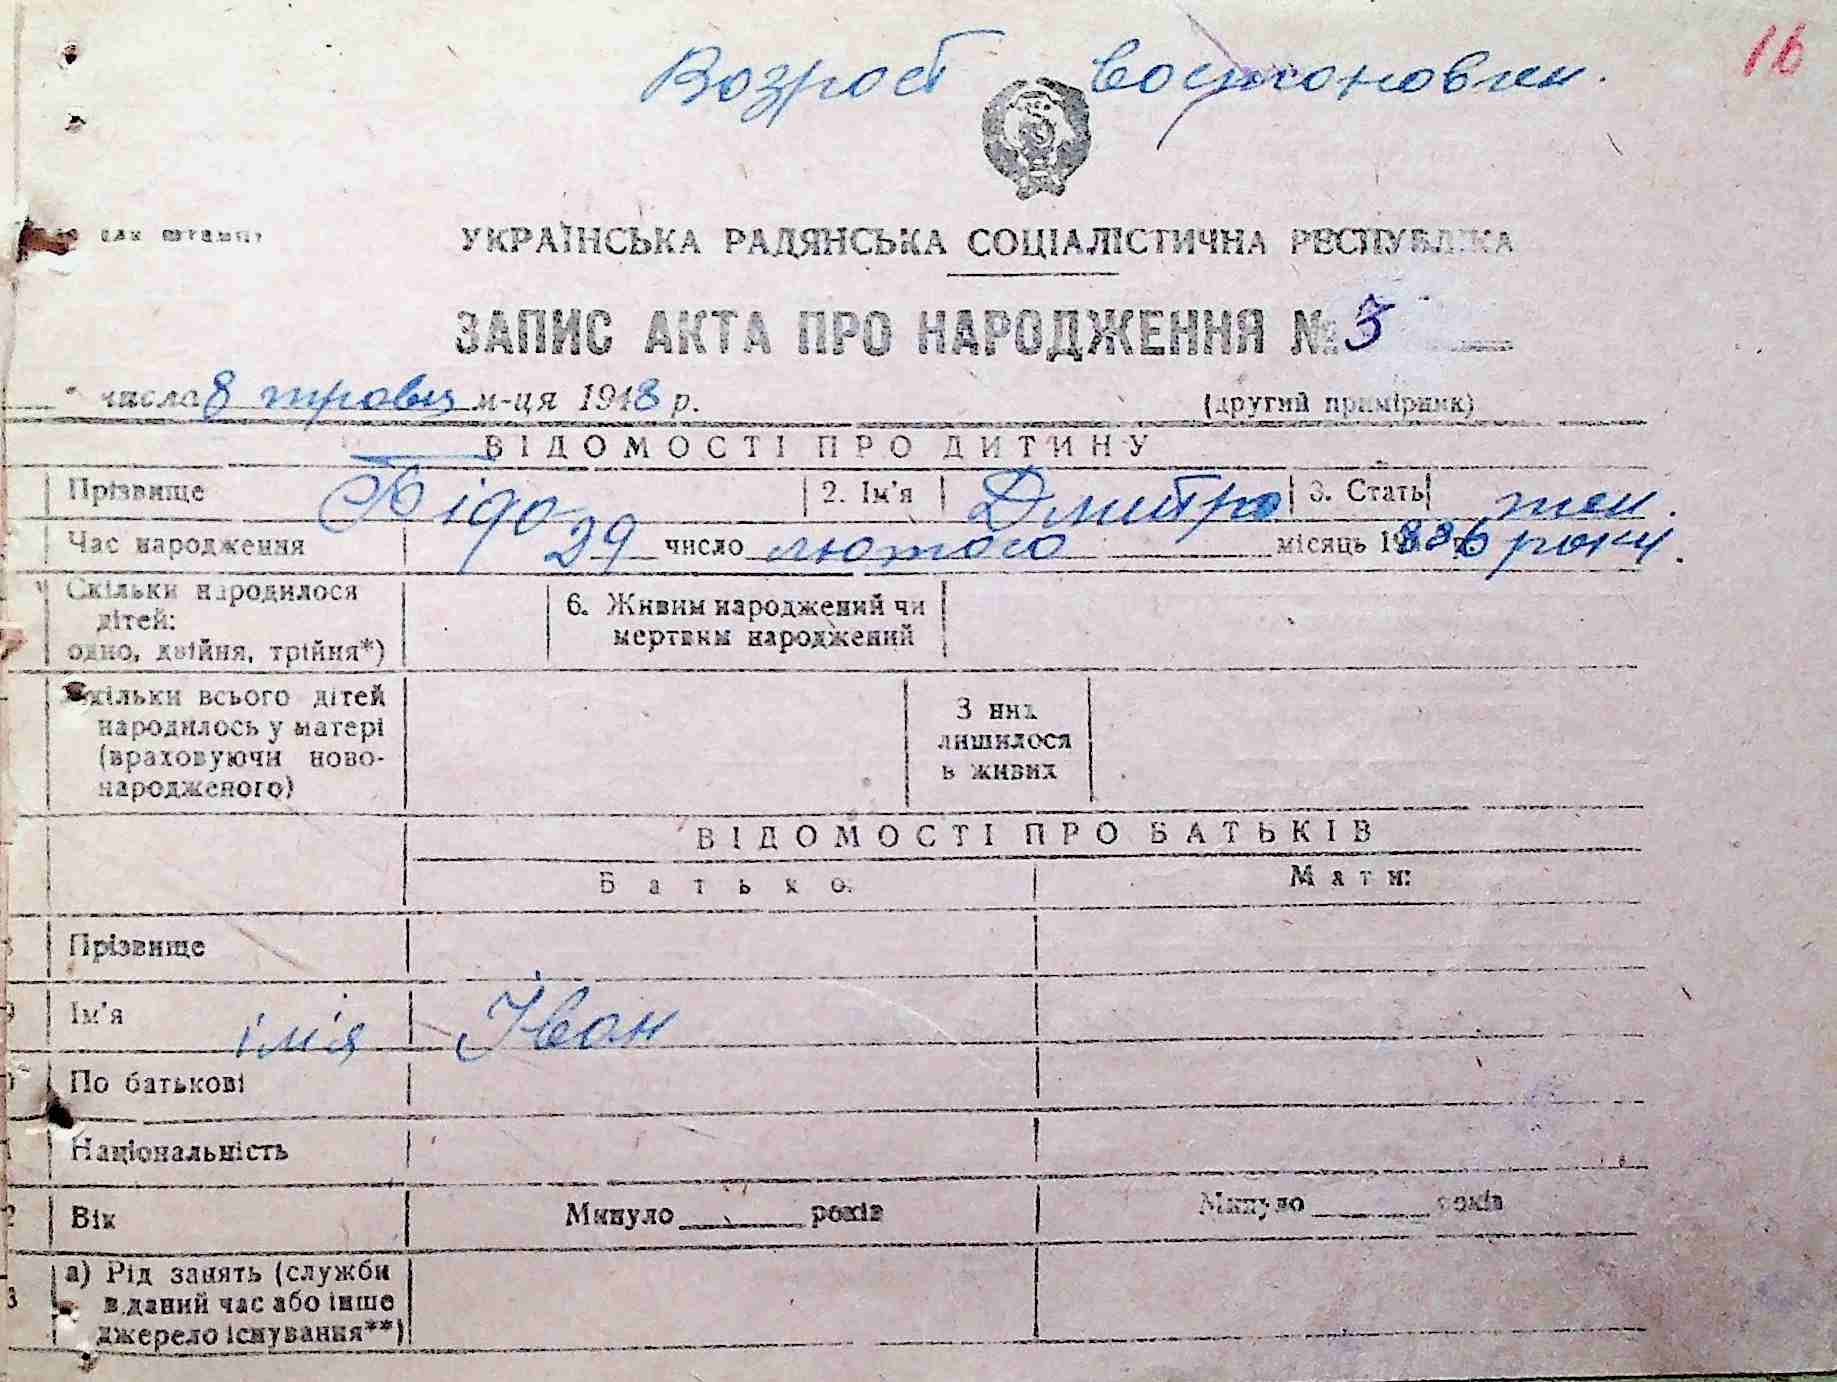 16
Возраст востановлен.
УКРАЇНСЬКА РАДЯНСЬКА СОЦІАЛІСТИЧНА РЕСПУБЛІКА
ЗАПИС АКТА ПРО НАРОДЖЕННЯ № 3
числа 8 травня м-ця 1948 р. (другий примірник)
ВІДОМОСТІ ПРО ДИТИНУ
Прізвище 2. Ім'я Дмитро 3. Стать
Час народження 29 число лютого місяць 1886 року.
Скільки народилося дітей: одно, двійня, трійня*)
6. Живим народжений чи мертвим народжений
Скільки всього дітей народилось у матері (враховуючи ново-народженого)
З них лишилося в живих
ВІДОМОСТІ ПРО БАТЬКІВ
Батько: Мати:
Прізвище
Ім'я ім'я Іван
По батькові
Національність
Вік Минуло років Минуло років
а) Рід занять (служби в даний час або інше джерело існування**)